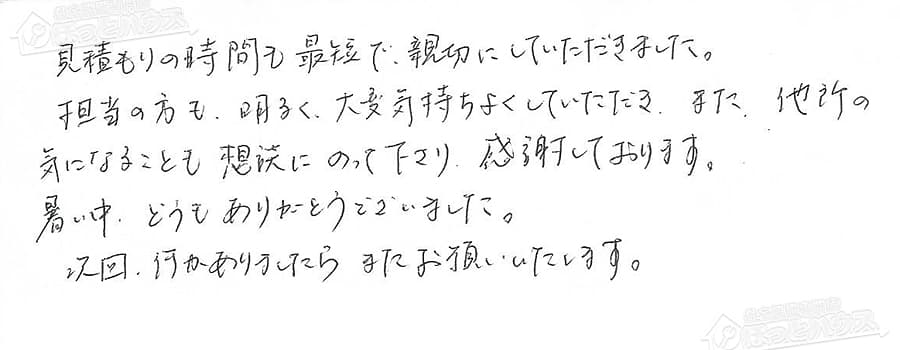 見積もりの時間も最短で、親切にしていただきました。
担当の方も、明るく、大変気持ちよくしていただき、また、他所の
気になることも想談にのって下さり、感謝しております。
暑い中、どうもありがとうございました。
次回、何かありましたらまたお願いいたします。
ほっとハウス
ほっとハウス